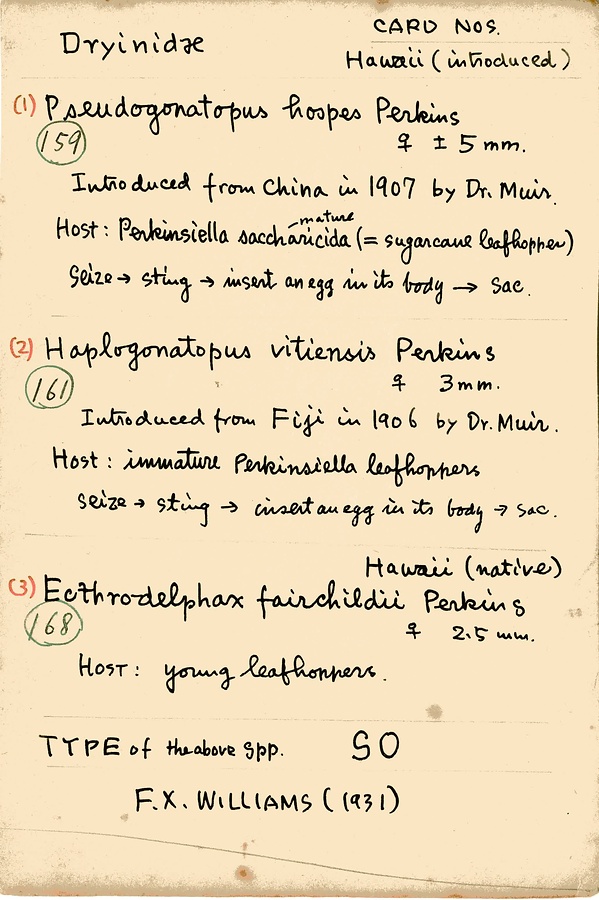 CARD NOS.
Dryinidæ
Hawaii (introduced)
(1) Pseudogonatopus hospes Perkins
159
♀ ± 5 mm.
Introduced from China in 1907 by Dr. Muir.
mature
Host: Perkinsiella saccharicida (= sugarcane leafhopper)
Seize → sting → insert an egg in its body → sac.
(2) Haplogonatopus vitiensis Perkins
161
♀ 3 mm.
Introduced from Fiji in 1906 by Dr. Muir.
Host: immature Perkinsiella leafhoppers
seize → sting → insert an egg in its body → sac.
Hawaii (native)
(3) Ecthrodelphax fairchildii Perkins
168
♀ 2.5 mm.
HOST: young leafhoppers.
TYPE of the above spp. SO
F.X. WILLIAMS (1931)